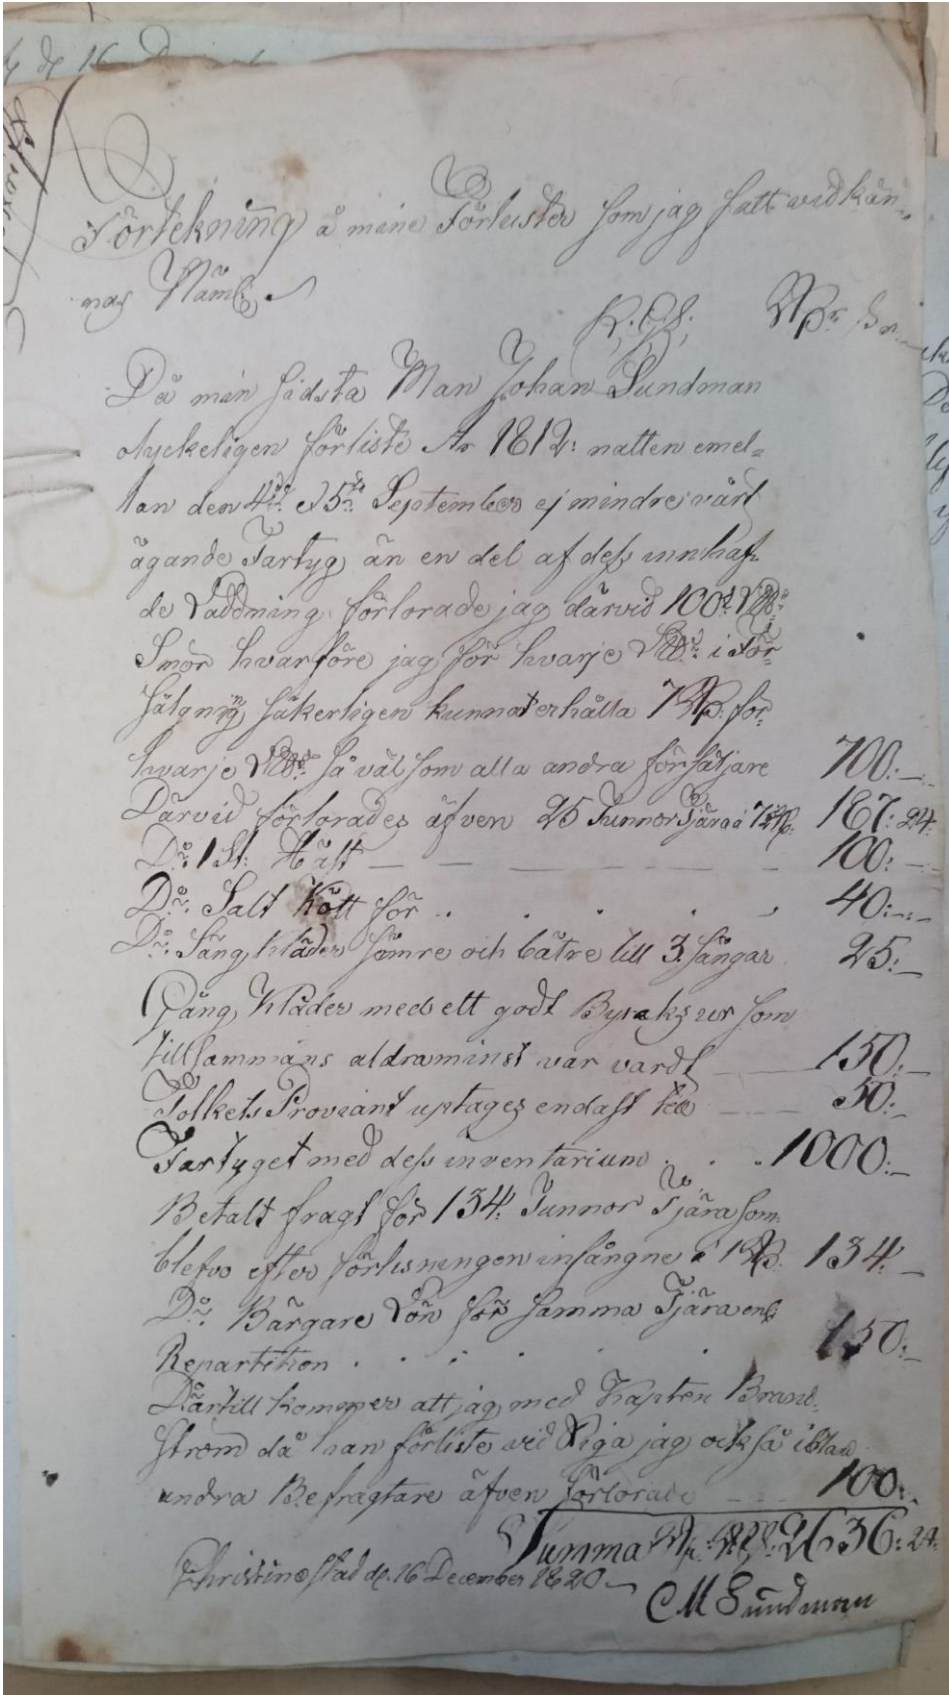 d. 16 D
Förtekning å mine Förluster som jag fått vidkän-
nas Näml.
R.G.S. Rp: sk
Då min sidsta Man Johan Sundman
olyckeligen förliste År 1812: natten emel=
lan den 4de & 5te September ej mindre vårt
ägande Fartyg, än en del af dess innhaf-
de Laddning förlorade jag därvid 100d L℔d:
Smör hvarföre jag för hvarje L℔d: i För-
sälgning, säkerligen kunnat erhålla 7 Rp. för
hvarje L℔d: så väl som alla andra försäljare 700:—
Därvid förlorades äfven 25 Tunnor Tjära à 7½ Rp. 187: 24.
Do. 1 St: Häst — — — — 100:—
Do. Salt Kött för . . . . . 40:—
Do. Säng, kläder sämre och bätre till 3. sängar 25:—
Gång, Kläder med ett godt
tillsammans aldraminst var vardt — 150:—
Folkets Proviant uptages endast till — — 50:—
Fartyget med dess inventarium . . . 1000:—
Betalt fragt för 134. Tunnor Tjära som
blefvo efter förlisningen infångne à 1 Rp. 134:—
Do. Bärgare Lön för samma Tjära enl.
Repartition . . . . . . 150:—
Därtill kommer att jag med Kapten Brand-
ström då han förliste vid Riga jag också ibland
andra Befragtare äfven förlorade — — 100:—
Summa Rp. R.G.S. 2636: 24.
Christinestad d. 16 December 1820
C M Sundman